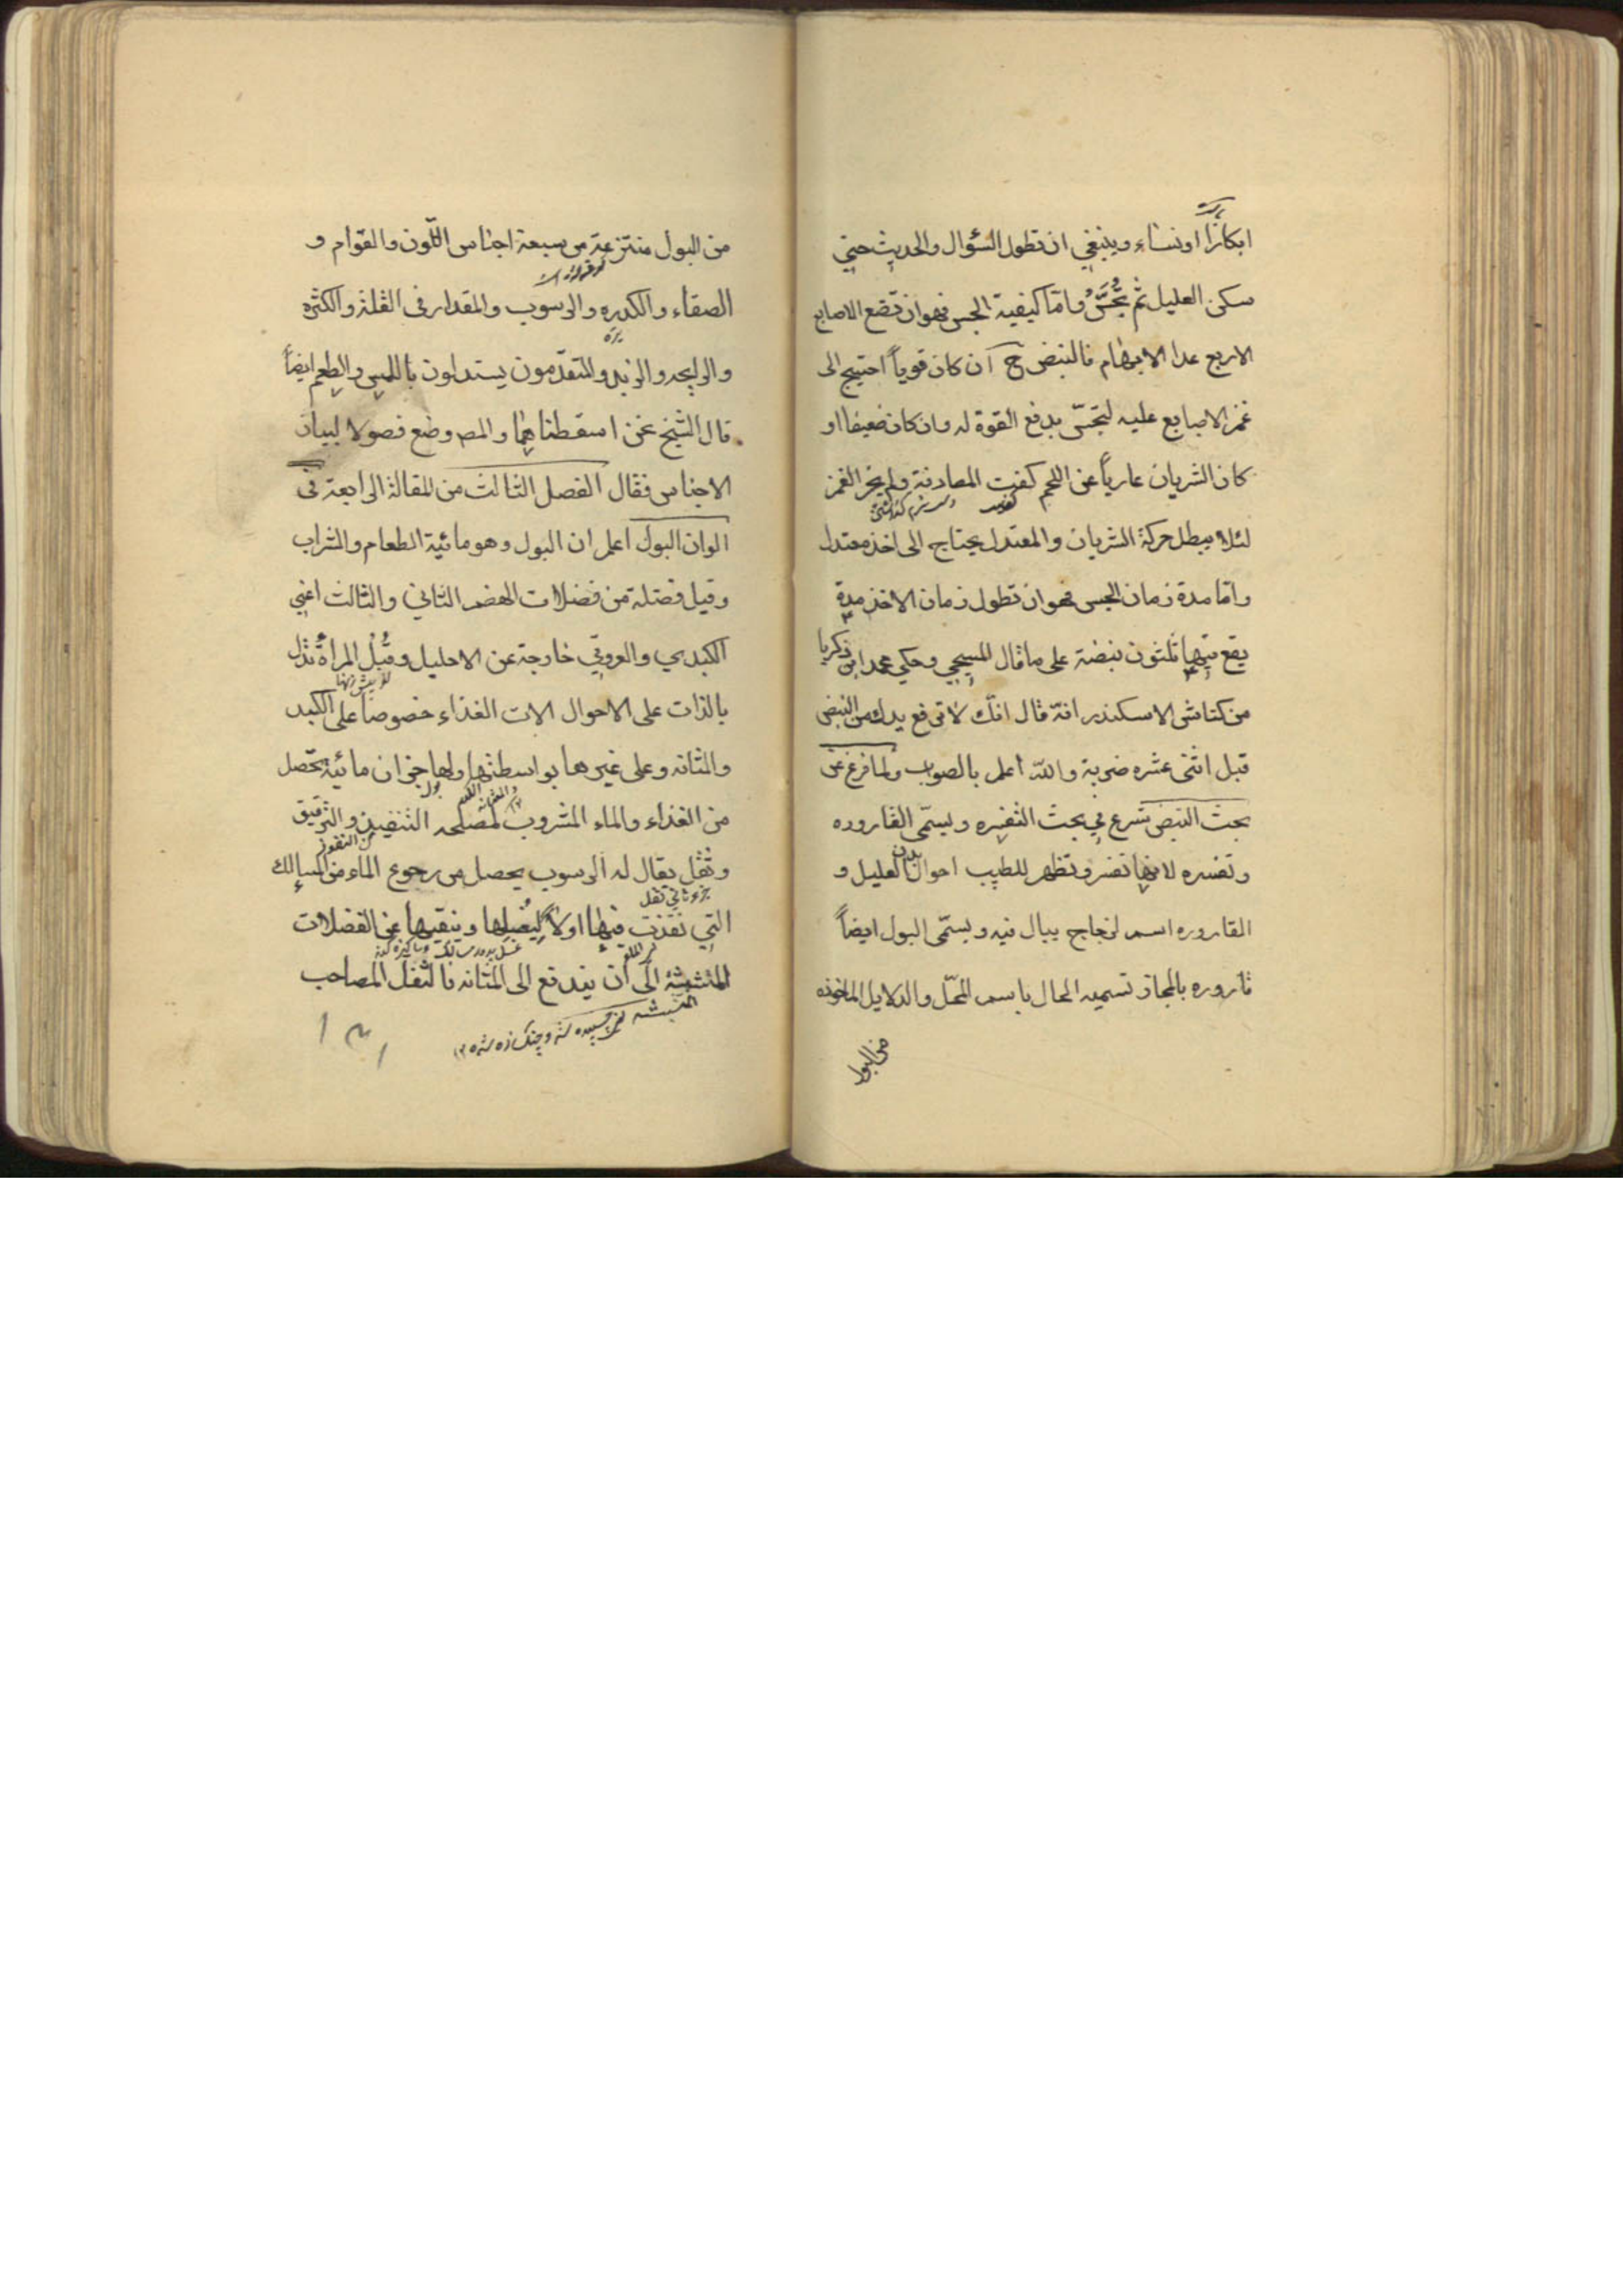 ابكارًا او نساء وينبغي ان تطول السؤال والحديث حتي
سكن العليل ثم يُجَسُّ واما كيفية الجس فهو ان تضع الاصابع
الاربع عدا الابهام فالنبض ح ان كان قوياً احتيج الى
غمز الاصابع عليه ليتحسّ بدفع القوة له وان كان ضعيفا او
كان الشريان عارياً عن اللحم كفت المصادفة ولم يجز الغمز
لئلا يبطل حركة الشريان والمعتدل يحتاج الى اخذ معتدل
واما مدة زمان الجس فهو ان تطول زمان الاخذ مدة
يقع فيها ثلثون نبضة على ما قال المسيحي وحكي محمد ابن زكريا
من كناش الاسكندر انه قال انك لا ترفع يدك من النبض
قبل اثنى عشره ضربة والله اعلم بالصواب ولما فرغ عن
بحث النبض شرع في بحث التفسره ويسمّى القاروره
وتفسره لانها تفسر وتظهر للطبيب احوال بدن العليل و
القاروره اسم لزجاج يبال فيه ويسمّى البول ايضاً
قاروره بالمجاز تسميه الحال باسم المحلّ والدلايل الماخوذه
من البول
من البول منتزعة من سبعة اجناس اللّون والقوام و
الصفاء والكدره والرسوب والمقدار فى القلة والكثره
والرايحه والزبد والمتقدّمون يستدلون باللمس والطعم ايضاً
قال الشيخ نحن اسقطناهما والمصـ وضع فصولا لبيان
الاجناس فقال الفصل الثالث من المقالة الرابعة فى
الوان البول اعلم ان البول وهو مائية الطعام والشراب
وقيل فضلة من فضلات الهضم الثاني والثالث اعني
الكبدي والعروقي خارجة عن الاحليل وقُبُل المرأة تدل
بالذات على الاحوال الات الغذاء خصوصاً على الكبد
والمثانه وعلى غيرها بواسطتها ولها جزءان مائية تحصل
من الغذاء والماء المشروب لمصلحه التنفيذ والترقيق
وثفل يقال له الرسوب يحصل من رجوع الماء من المسالك
جزء ثاني ثفل
التي نفذت فيها اولاً ليغسلها وينقيها عن الفضلات
المتشبثة الى ان يندفع الى المثانه فالثفل المصاحب